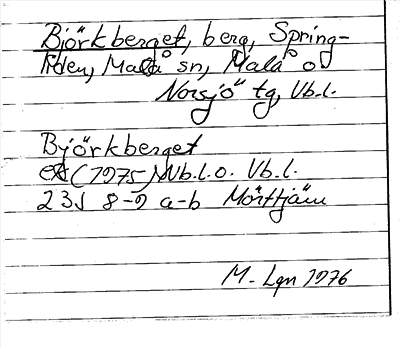 Björkberget, berg, Spring-
liden, Malå sn, Malå o
Norsjö tg, Vb.l.
Björkberget
ek (1975) Nb.l. o. Vb.l.
23J 8-9 a-b Mörttjärn
M. Lgn 1976